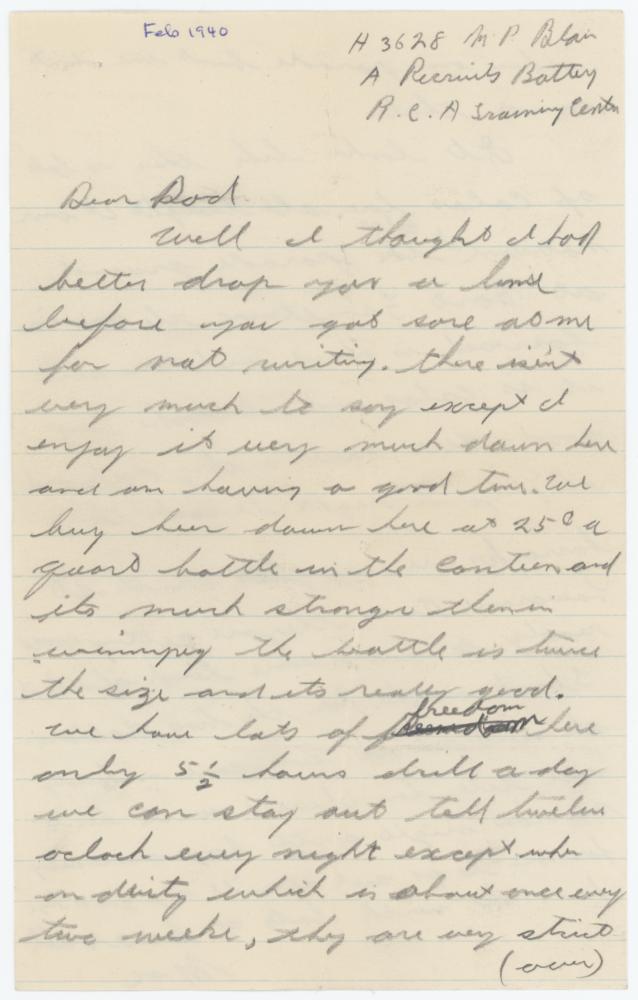 Feb 1940
H 3628 M P Blair
A Recruits Battery
R.C.A Training Centre
Dear Dad.
Well I thought I had
better drop you a line
before you got sore at me
for not writing. there isent
very much to say except I
enjoy it very much down here
and am having a good time. We
buy beer down here at 25¢ a
quart bottle in the Canteen and
its much stronger then in
winnipeg the bottle is twice
the size and its really good.
we have lots of freedom here
only 5 1/2 hours drill a day
we can stay out till twelve
oclock every night except when
on duity which is about once every
two weeks, they are very strict
(over)